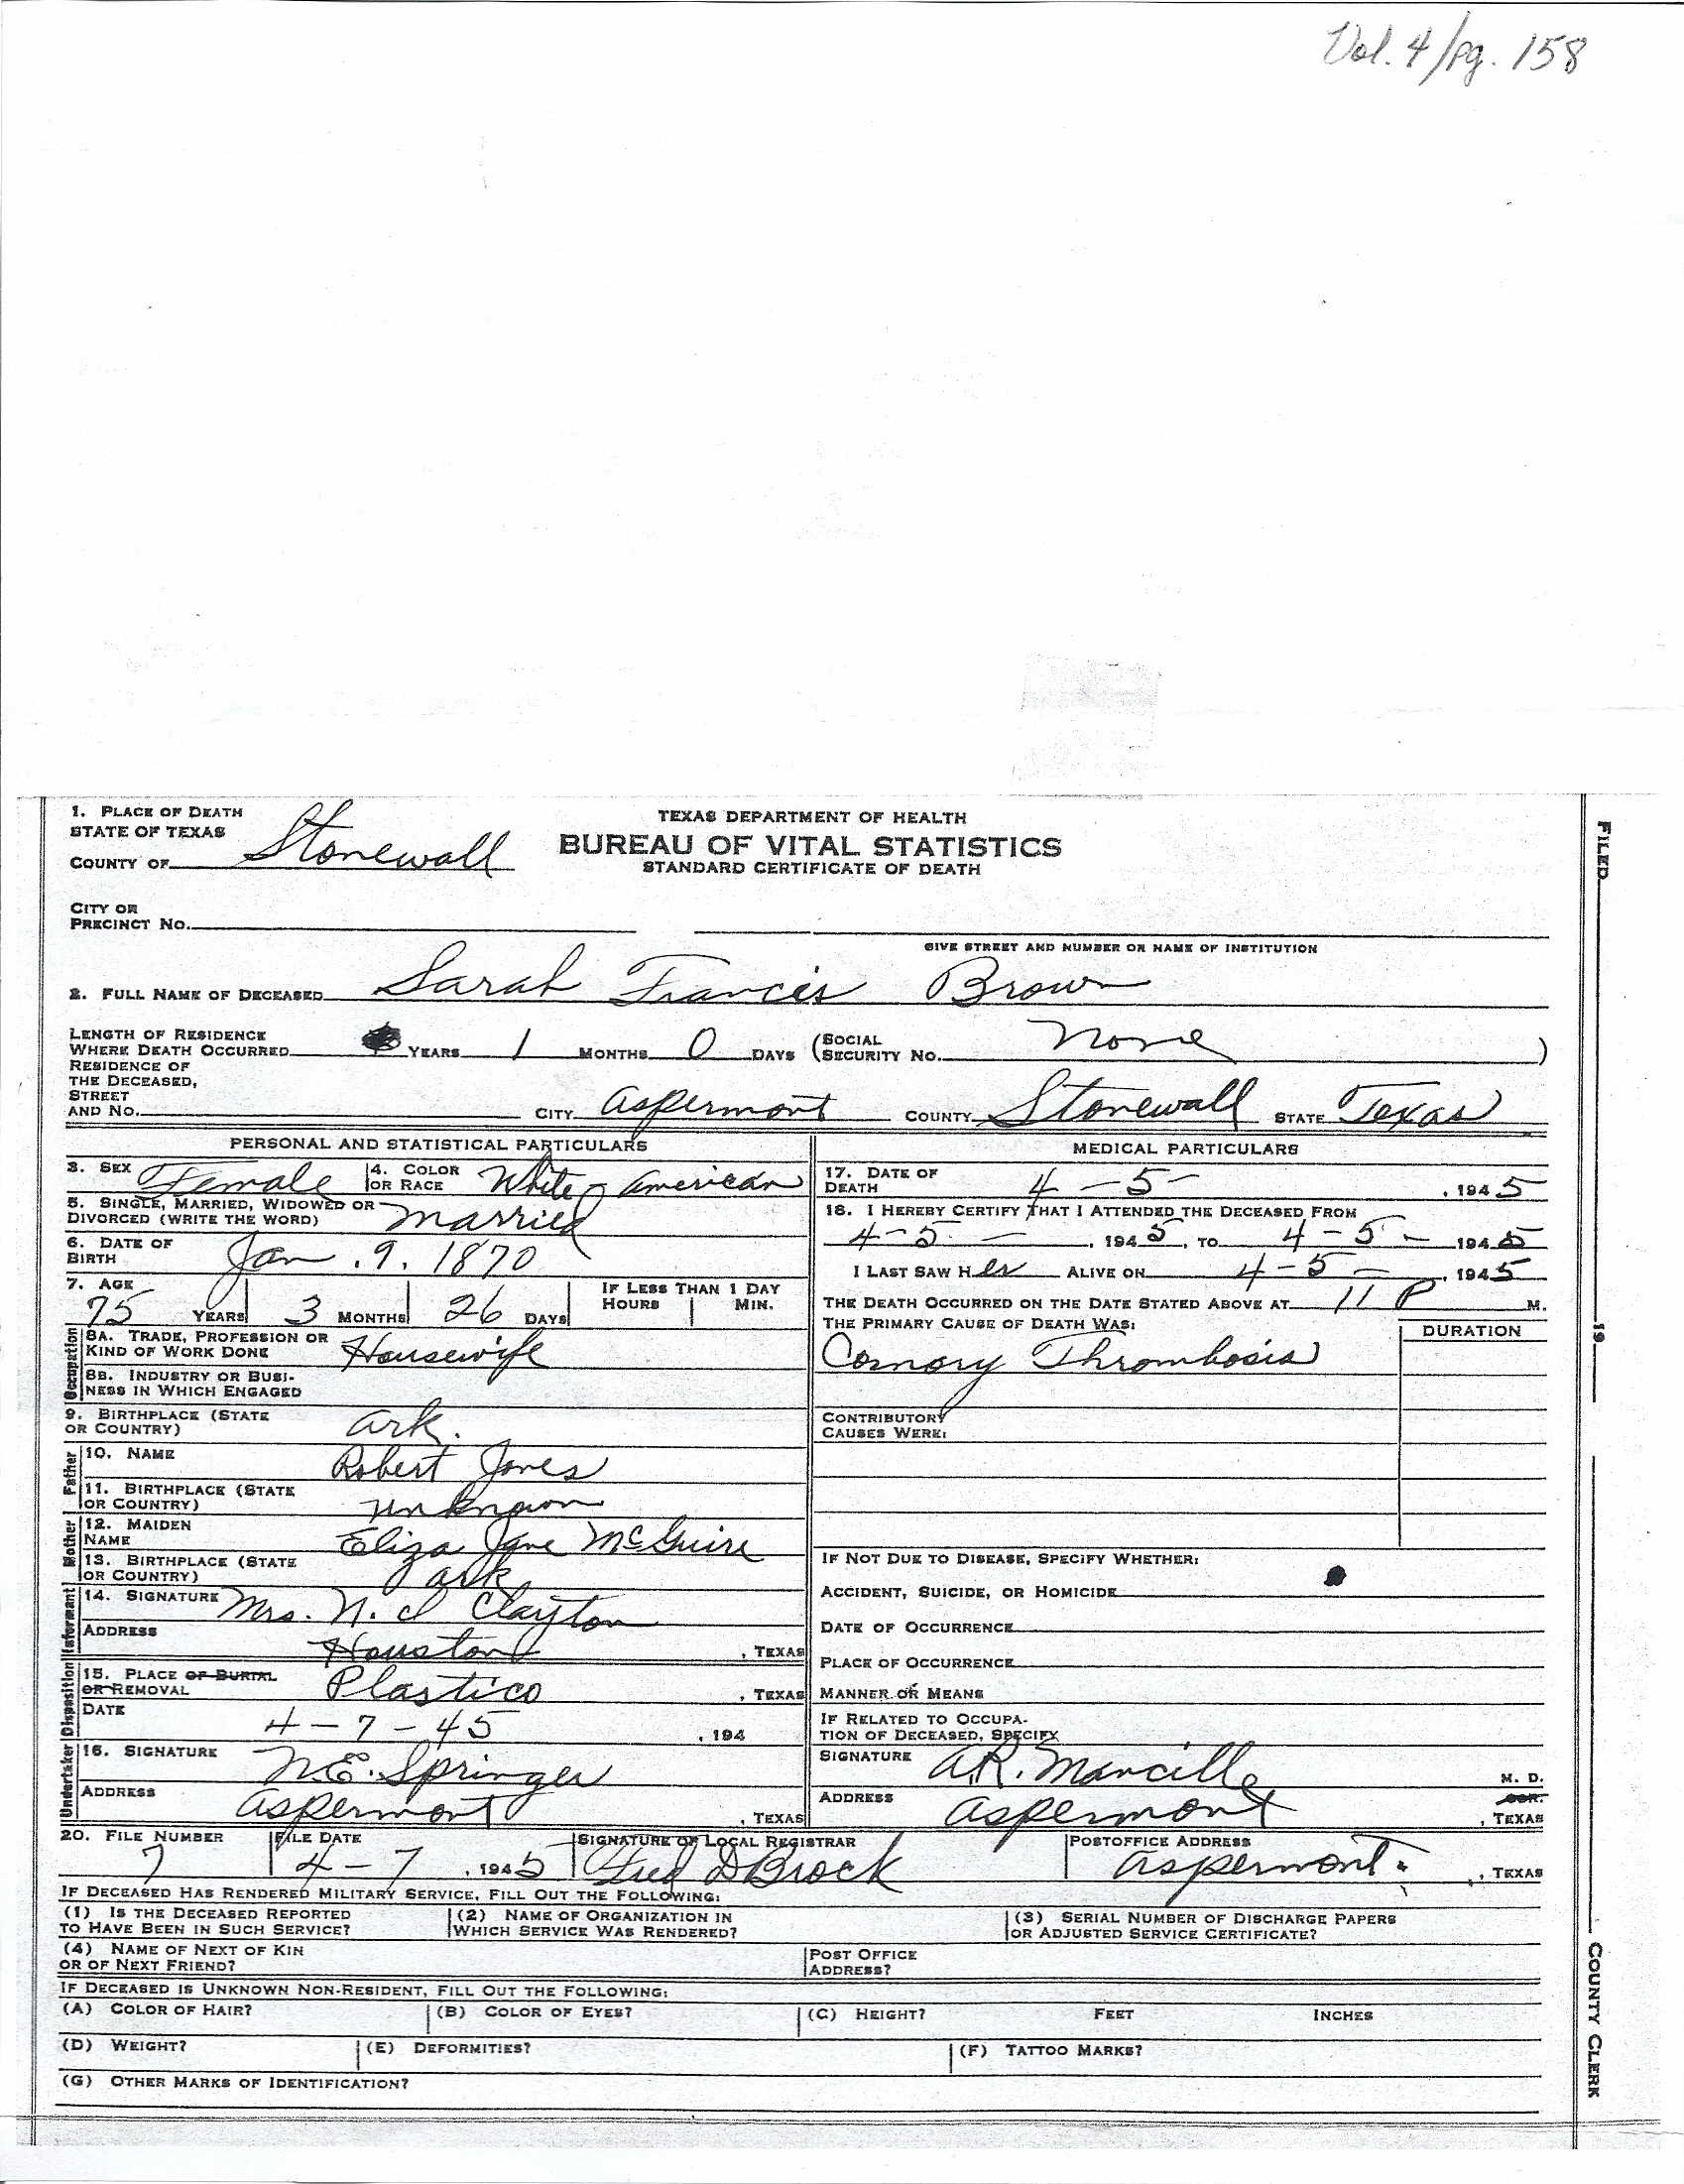 Vol. 4/pg. 158
1. PLACE OF DEATH
STATE OF TEXAS
COUNTY OF Stonewall
TEXAS DEPARTMENT OF HEALTH
BUREAU OF VITAL STATISTICS
STANDARD CERTIFICATE OF DEATH
CITY OR
PRECINCT NO.
GIVE STREET AND NUMBER OR NAME OF INSTITUTION
2. FULL NAME OF DECEASED Sarah Francis Brown
LENGTH OF RESIDENCE
WHERE DEATH OCCURRED YEARS 1 MONTHS 0 DAYS (SOCIAL SECURITY NO. None)
RESIDENCE OF
THE DECEASED,
STREET
AND NO. CITY Aspermont COUNTY Stonewall STATE Texas
PERSONAL AND STATISTICAL PARTICULARS
3. SEX Female 4. COLOR OR RACE White American
5. SINGLE, MARRIED, WIDOWED OR
DIVORCED (WRITE THE WORD) Married
6. DATE OF
BIRTH Jan. 9. 1870
7. AGE IF LESS THAN 1 DAY
75 YEARS 3 MONTHS 26 DAYS HOURS MIN.
Occupation
8A. TRADE, PROFESSION OR
KIND OF WORK DONE Housewife
8B. INDUSTRY OR BUSI-
NESS IN WHICH ENGAGED
9. BIRTHPLACE (STATE
OR COUNTRY) Ark.
Father
10. NAME Robert Jones
11. BIRTHPLACE (STATE
OR COUNTRY) unknown
Mother
12. MAIDEN
NAME Eliza Jane McGuire
13. BIRTHPLACE (STATE
OR COUNTRY) Ark
Informant
14. SIGNATURE Mrs. N. I Clayton
ADDRESS Houston, TEXAS
Disposition
15. PLACE OF BURIAL
OR REMOVAL Plastico, TEXAS
DATE 4-7-45, 194
Undertaker
16. SIGNATURE N.E. Springer
ADDRESS Aspermont, TEXAS
MEDICAL PARTICULARS
17. DATE OF
DEATH 4-5-, 1945
18. I HEREBY CERTIFY THAT I ATTENDED THE DECEASED FROM
4-5-, 1945, TO 4-5-, 1945
I LAST SAW Her ALIVE ON 4-5-, 1945
THE DEATH OCCURRED ON THE DATE STATED ABOVE AT 11 P M.
THE PRIMARY CAUSE OF DEATH WAS: DURATION
Cornory Thrombosis
CONTRIBUTORY
CAUSES WERE:
IF NOT DUE TO DISEASE, SPECIFY WHETHER:
ACCIDENT, SUICIDE, OR HOMICIDE
DATE OF OCCURRENCE
PLACE OF OCCURRENCE
MANNER OR MEANS
IF RELATED TO OCCUPA-
TION OF DECEASED, SPECIFY
SIGNATURE A.R. Mancille M. D.
ADDRESS Aspermont, TEXAS
20. FILE NUMBER FILE DATE SIGNATURE OF LOCAL REGISTRAR POSTOFFICE ADDRESS
7 4-7, 1945 Fred D Brock Aspermont, TEXAS
IF DECEASED HAS RENDERED MILITARY SERVICE, FILL OUT THE FOLLOWING:
(1) IS THE DECEASED REPORTED (2) NAME OF ORGANIZATION IN (3) SERIAL NUMBER OF DISCHARGE PAPERS
TO HAVE BEEN IN SUCH SERVICE? WHICH SERVICE WAS RENDERED? OR ADJUSTED SERVICE CERTIFICATE?
(4) NAME OF NEXT OF KIN POST OFFICE
OR OF NEXT FRIEND? ADDRESS?
IF DECEASED IS UNKNOWN NON-RESIDENT, FILL OUT THE FOLLOWING:
(A) COLOR OF HAIR? (B) COLOR OF EYES? (C) HEIGHT? FEET INCHES
(D) WEIGHT? (E) DEFORMITIES? (F) TATTOO MARKS?
(G) OTHER MARKS OF IDENTIFICATION?
FILED 19 COUNTY CLERK